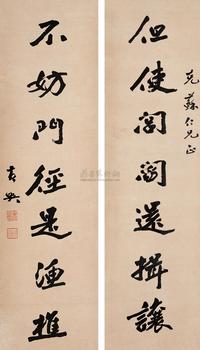 克蘇仁兄正
但使閭閻還揖讓
不妨門徑是漁樵
黃興